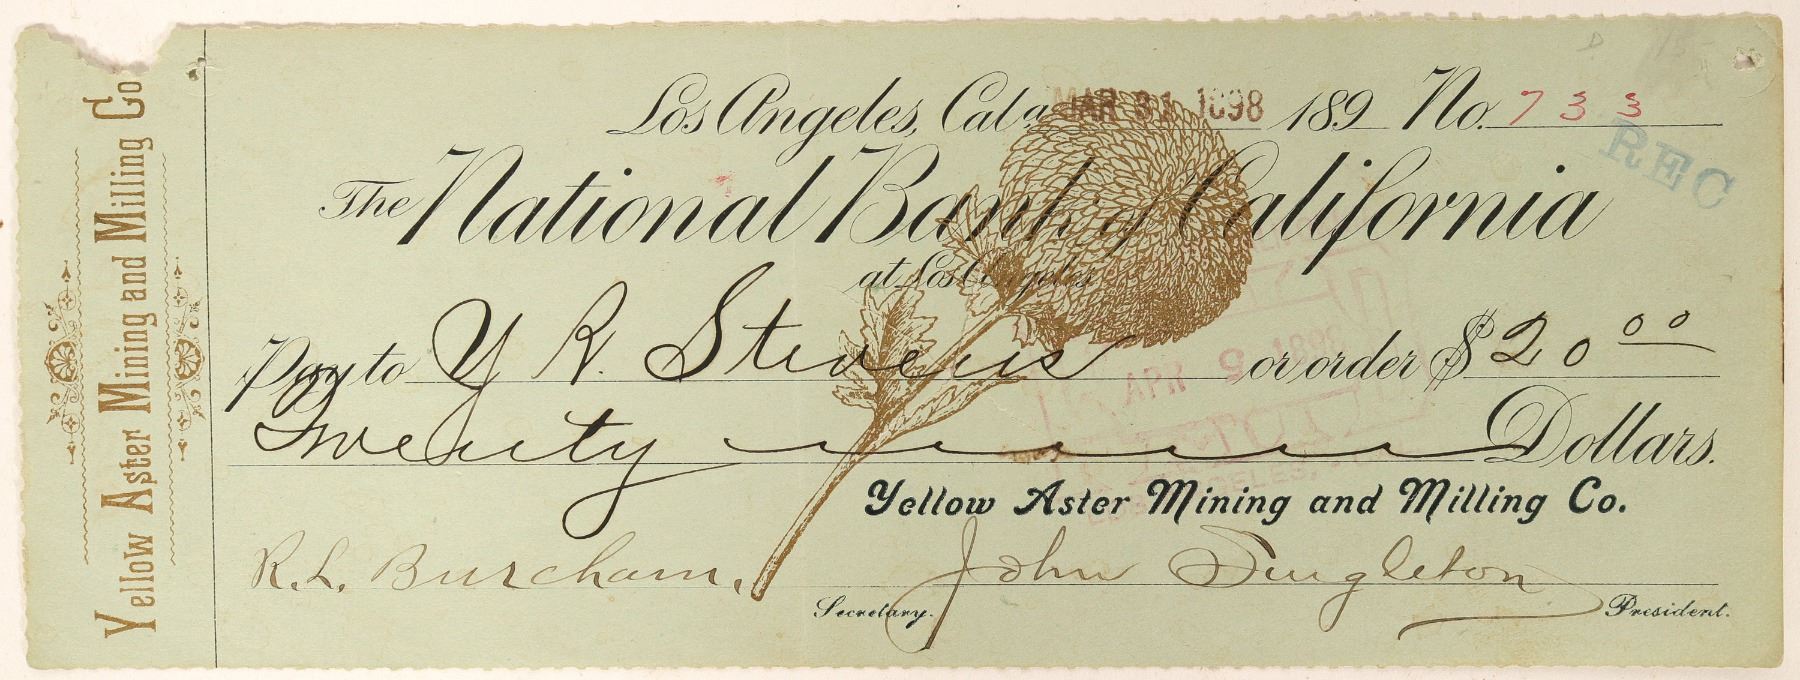 Yellow Aster Mining and Milling Co
Los Angeles, Cala. MAR 31 1898 189 No. 733
REC
The National Bank of California
at Los Angeles
Pay to Y R. Stevens or order $20 00
APR 9 1898
Twenty Dollars.
Yellow Aster Mining and Milling Co.
R. L. Burcham, John Singleton
Secretary. President.